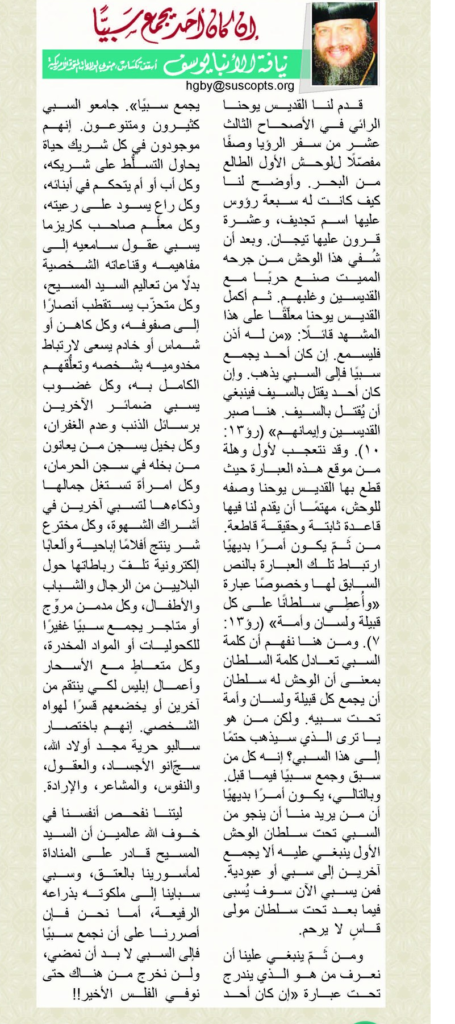 إن كان أحد يجمع سبيًا
نيافة الأنبا يوسف
hgby@suscopts.org
قدم لنا القديس يوحنا
الرائي في الأصحاح الثالث
عشر من سفر الرؤيا وصفًا
مفصّلًا للوحش الأول الطالع
من البحر. وأوضح لنا
كيف كانت له سبعة رؤوس
عليها اسم تجديف، وعشرة
قرون عليها تيجان. وبعد أن
شُفي هذا الوحش من جرحه
المميت صنع حربًا مع
القديسين وغلبهم. ثم أكمل
القديس يوحنا معلّقًا على هذا
المشهد قائلًا: «من له أذن
فليسمع. إن كان أحد يجمع
سبيًا فإلى السبي يذهب. وإن
كان أحد يقتل بالسيف فينبغي
أن يُقتل بالسيف. هنا صبر
القديسين وإيمانهم» (رؤ١٣:
١٠). وقد نتعجب لأول وهلة
من موقع هذه العبارة حيث
قطع بها القديس يوحنا وصفه
للوحش، مهتمًا أن يقدم لنا فيها
قاعدة ثابتة وحقيقة قاطعة.
من ثَمّ يكون أمرًا بديهيًا
ارتباط تلك العبارة بالنص
السابق لها وخصوصًا عبارة
«وأُعطِي سلطانًا على كل
قبيلة ولسان وأمة» (رؤ١٣:
٧). ومن هنا نفهم أن كلمة
السبي تعادل كلمة السلطان
بمعنى أن الوحش له سلطان
أن يجمع كل قبيلة ولسان وأمة
تحت سبيه. ولكن من هو
يا ترى الذي سيذهب حتمًا
إلى هذا السبي؟ إنه كل من
سبق وجمع سبيًا فيما قبل.
وبالتالي، يكون أمرًا بديهيًا
أن من يريد منا أن ينجو من
السبي تحت سلطان الوحش
الأول ينبغي عليه ألا يجمع
آخرين إلى سبي أو عبودية.
فمن يسبي الآن سوف يُسبى
فيما بعد تحت سلطان مولى
قاسٍ لا يرحم.
ومن ثَمّ ينبغي علينا أن
نعرف من هو الذي يندرج
تحت عبارة «إن كان أحد
يجمع سبيًا». جامعو السبي
كثيرون ومتنوعون. إنهم
موجودون في كل شريك حياة
يحاول التسلّط على شريكه،
وكل أب أو أم يتحكم في أبنائه،
وكل راعٍ يسود على رعيته،
وكل معلّم صاحب كاريزما
يسبي عقول سامعيه إلى
مفاهيمه وقناعاته الشخصية
بدلًا من تعاليم السيد المسيح،
وكل متحزّب يستقطب أنصارًا
إلى صفوفه، وكل كاهن أو
شماس أو خادم يسعى لارتباط
مخدوميه بشخصه وتعلُّقهم
الكامل به، وكل غضوب
يسبي ضمائر الآخرين
برسائل الذنب وعدم الغفران،
وكل بخيل يسجن من يعانون
من بخله في سجن الحرمان،
وكل امرأة تستغل جمالها
وذكاءها لتسبي آخرين في
أشراك الشهوة، وكل مخترع
شر ينتج أفلامًا إباحية وألعابًا
إلكترونية تلفّ رباطاتها حول
البلايين من الرجال والشباب
والأطفال، وكل مدمن مروّج
أو متاجر يجمع سبيًا غفيرًا
للكحوليات أو المواد المخدرة،
وكل متعاطٍ مع الأسحار
وأعمال إبليس لكي ينتقم من
آخرين أو يخضعهم قسرًا لهواه
الشخصي. إنهم باختصار
سالبو حرية مجد أولاد الله،
سجّانو الأجساد، والعقول،
والنفوس، والمشاعر، والإرادة.
ليتنا نفحص أنفسنا في
خوف الله عالمين أن السيد
المسيح قادر على المناداة
لمأسورينا بالعتق، وسبي
سبايانا إلى ملكوته بذراعه
الرفيعة، أما نحن فإن
أصررنا على أن نجمع سبيًا
فإلى السبي لا بد أن نمضي،
ولن نخرج من هناك حتى
نوفي الفلس الأخير!!